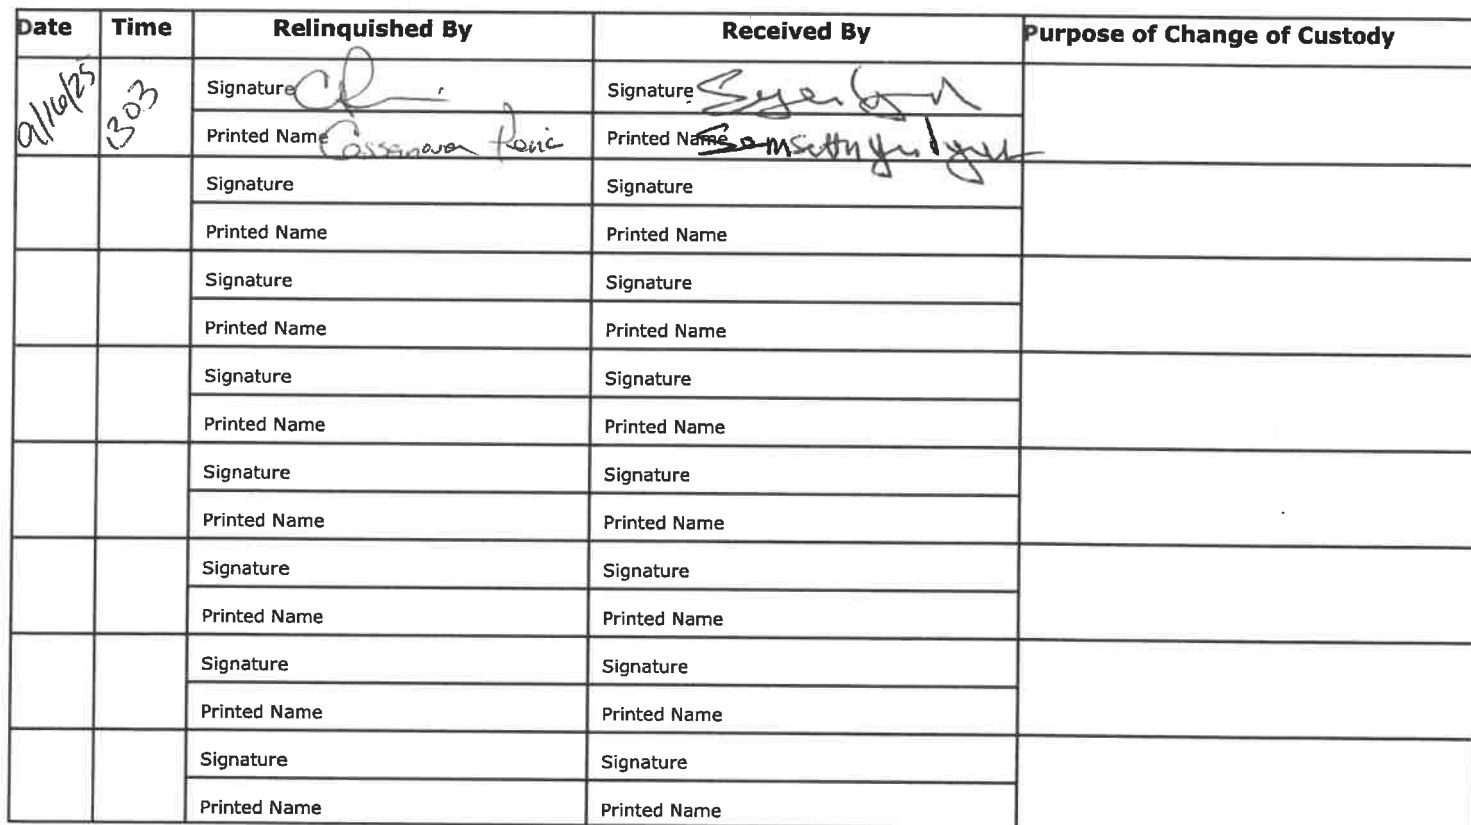 Date Time Relinquished By Received By Purpose of Change of Custody
9/16/25 1303 Signature Signature
Printed Name Cassanova Printed Name
Signature Signature
Printed Name Printed Name
Signature Signature
Printed Name Printed Name
Signature Signature
Printed Name Printed Name
Signature Signature
Printed Name Printed Name
Signature Signature
Printed Name Printed Name
Signature Signature
Printed Name Printed Name
Signature Signature
Printed Name Printed Name